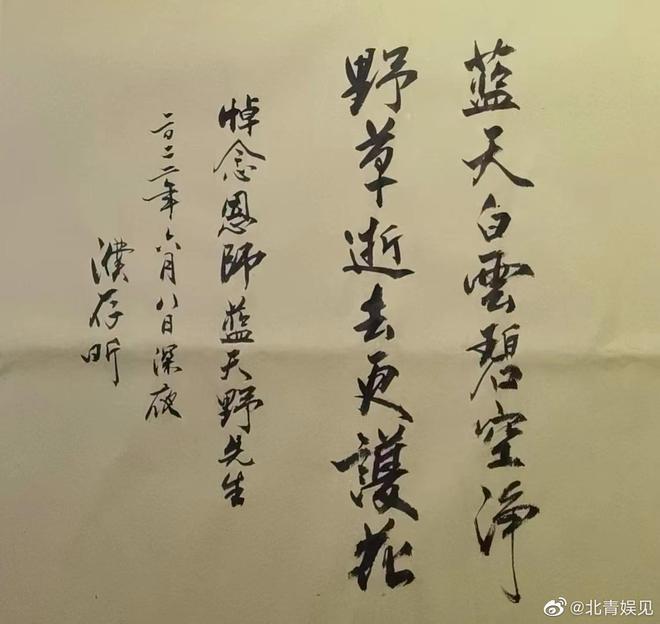 蓝天白雲碧空净
野草逝去更護花
悼念恩師蓝天野先生
二〇二二年六月八日深夜
濮存昕
@北青娱见